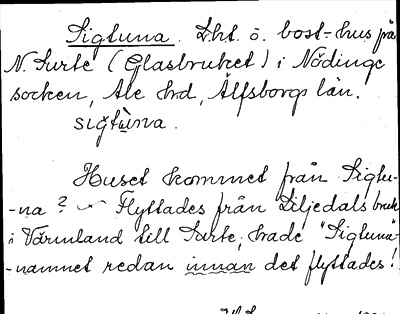 Sigtuna. Lht. ö. bost-hus på
N. Surte (Glasbruket) i Nödinge
socken, Ale hrd, Älfsborgs län.
siğtùna.
Huset kommet från Sigtu-
-na? Flyttades från Liljedals bruk
i Värmland till Surte, hade "Sigtuna"-
-namnet redan innan det flyttades!